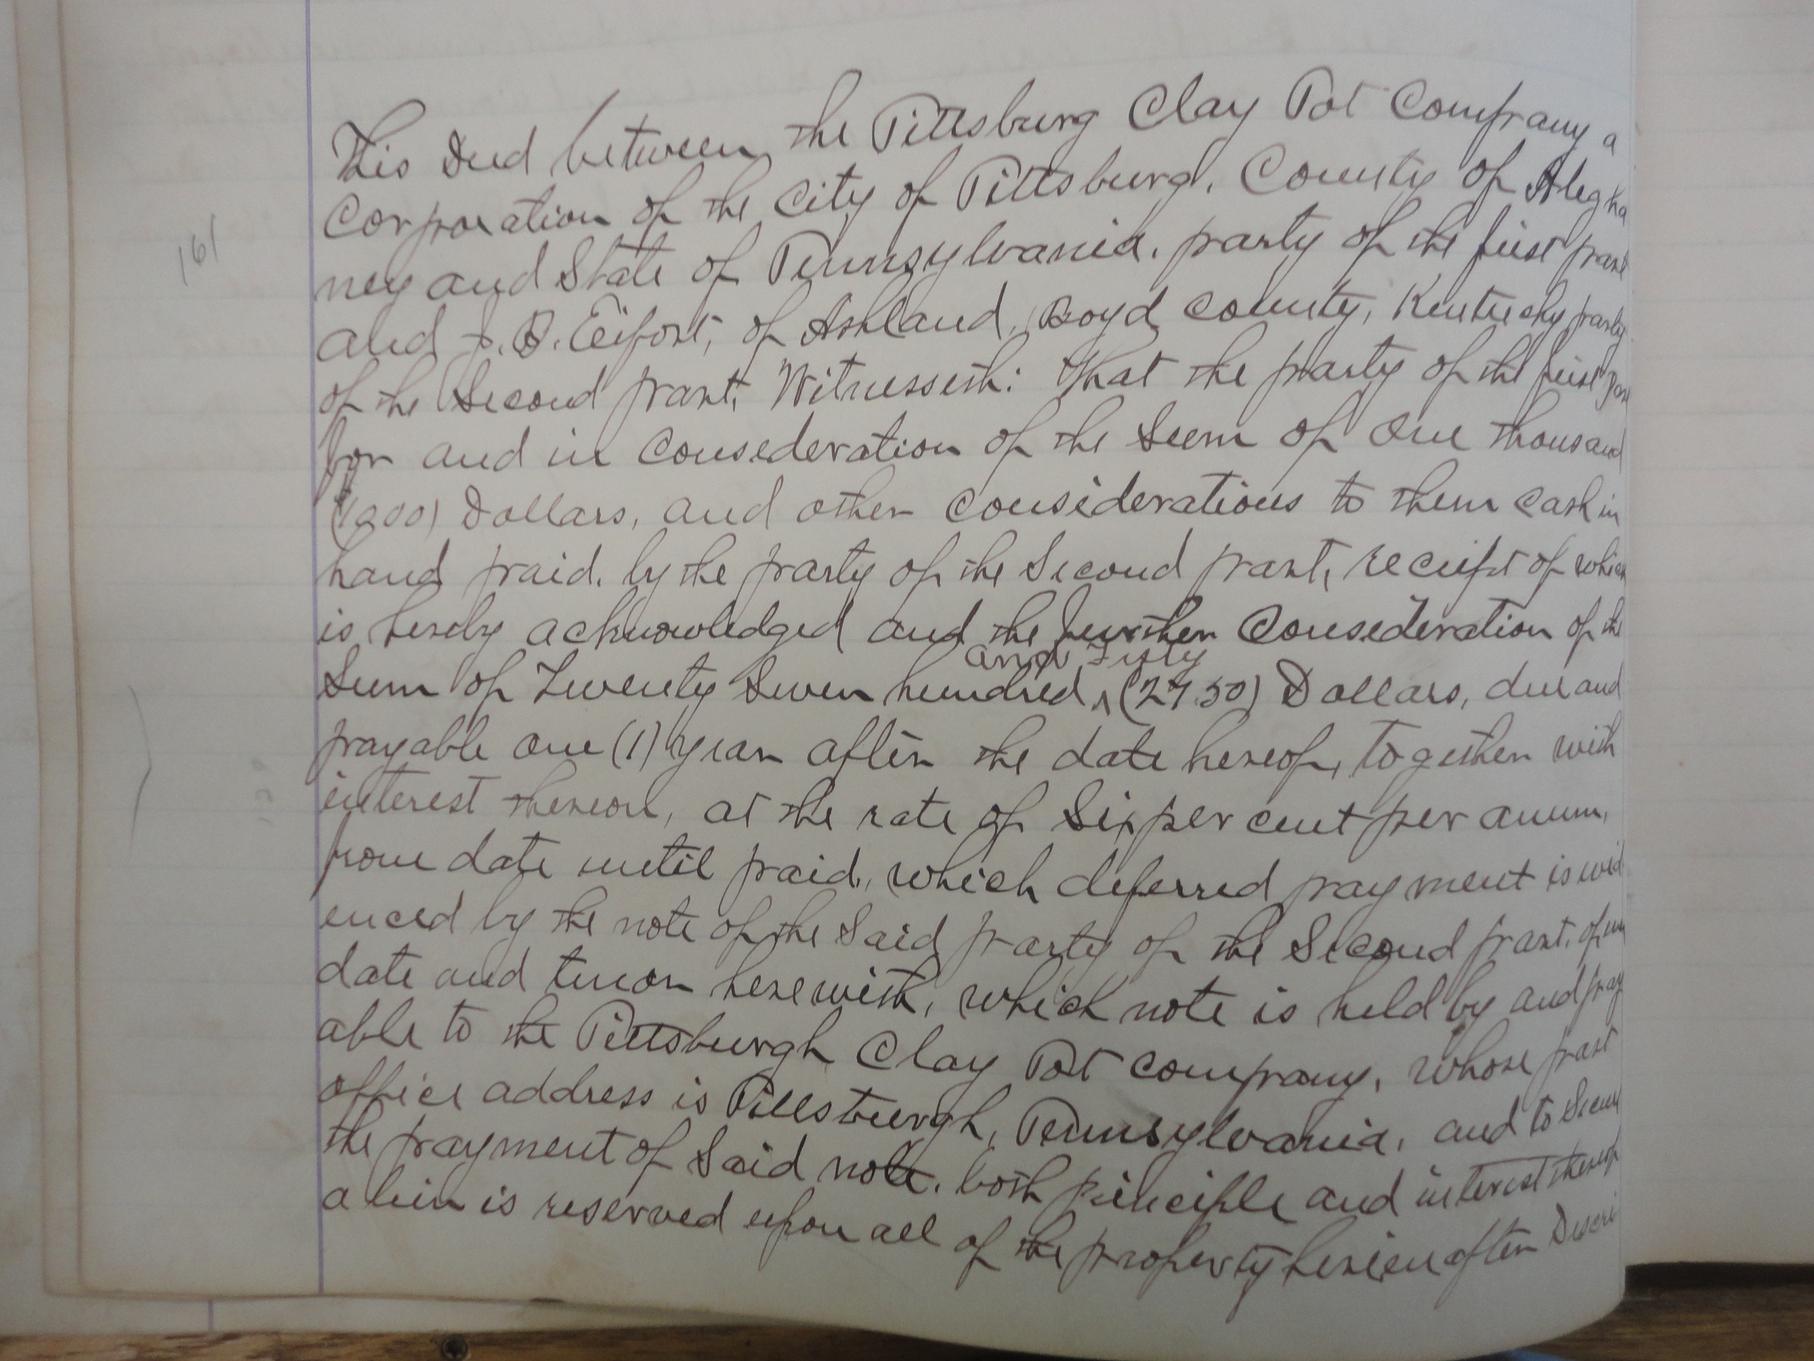 This Deed between the Pittsburg Clay Pot Company a
Corporation of the City of Pittsburg, County of Alegha
ney and State of Pennsylvania, party of the first part
and J. B. Eifort, of Ashland, Boyd County, Kentucky party
of the Second part, Witnesseth: That the party of the first part
for and in Consideration of the Sum of One thousand
(1000) Dollars, and other Considerations to them Cash in
hand paid, by the party of the Second part, receipt of which
is hereby acknowledged and the further Consideration of the
and Fifty
Sum of Twenty Seven hundred ^ (2750) Dollars, due and
payable one (1) year after the date hereof, together with
interest thereon, at the rate of Six per cent per anum,
from date until paid, which deferred payment is evid
enced by the note of the Said party of the Second part, of even
date and tenor herewith, which note is held by and pay
able to the Pittsburgh Clay Pot Company, whose post
office address is Pittsburgh, Pennsylvania, and to Secure
the payment of Said note, both principle and interest thereof
a lien is reserved upon all of the property herein after Descri
161